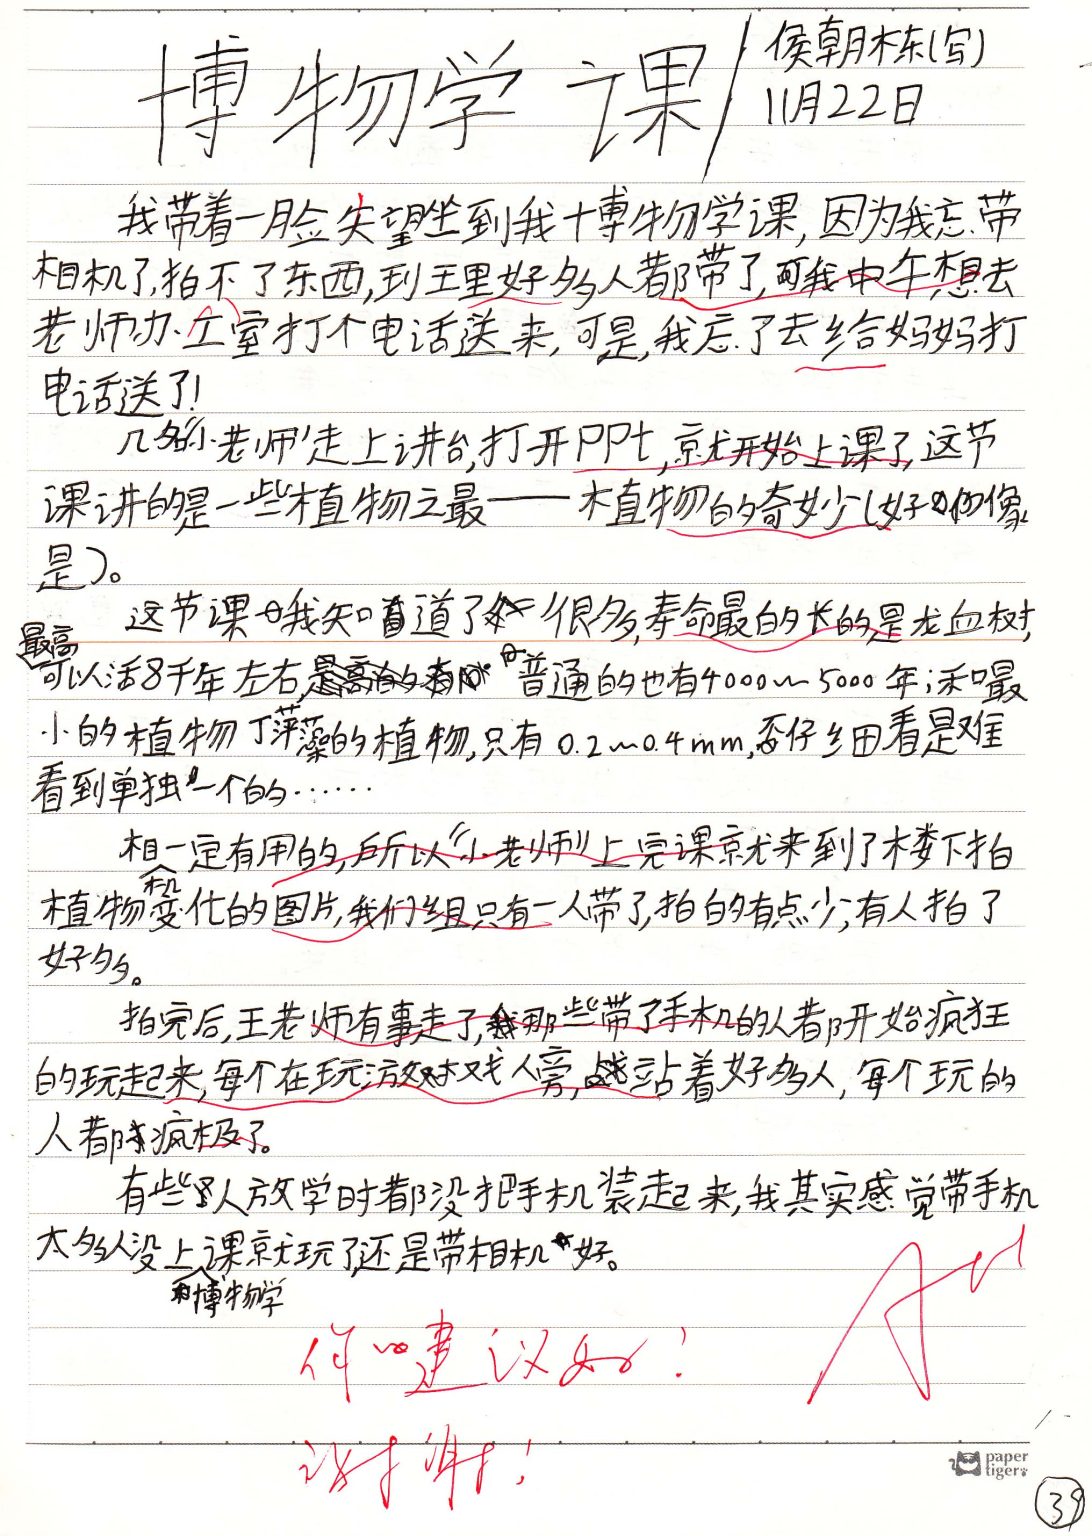 博物学课/侯朝栋(写)
11月22日
我带着一脸失望坐到我博物学课,因为我忘带
相机了,拍不了东西,到王里好多人都带了,可我中午,想去
老师办工室打个电话送来,可是,我忘了去给妈妈打
电话送了!
几名“小老师”走上讲台,打开PPt,就开始上课了,这节
课讲的是一些植物之最——植物的奇妙(好像
是)。
这节课我知道了很多,寿命最的长的是龙血树,
最高
可以活8千年左右,普通的也有4000~5000年;和最
小的植物丁萍藻的植物,只有0.2~0.4mm,否仔细看是难
看到单独一个的……
相一定有用的,所以“小老师”上完课就来到了楼下拍
机
植物变化的图片,我们组只有一人带了,拍的有点少;有人拍了
好多。
拍完后,王老师有事走了,那些带了手机的人都开始疯狂
的玩起来,每个在玩游戏人旁,站着好多人,每个玩的
人都疯极了。
有些人放学时都没把手机装起来,我其实感觉带手机
太多人没上课就玩了,还是带相机好。
和博物学
你的建议好!
谢谢!
paper
tiger
39